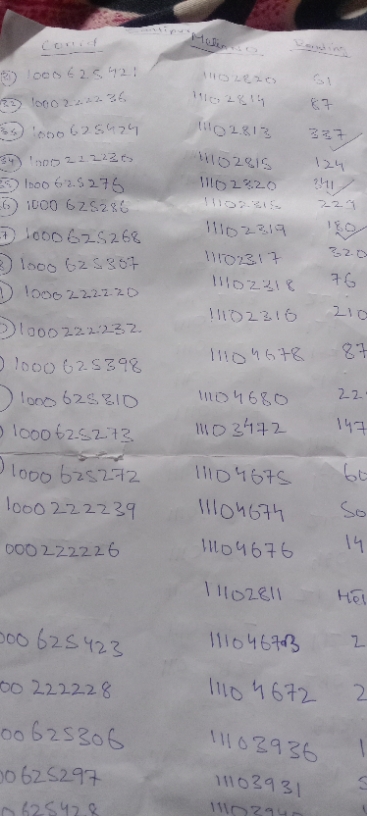 Courid Meter No Reading
1000625421 11102820 51
32 1000222236 11102814 87
33 1000625424 11102813 337
34 1000222230 11102815 124
35 1000625276 11102320
6 1000625286 11102315 229
7 1000625268 11102319 180
8 1000625307 11102317 320
1000222220 11102318 76
1000222232 11102316 210
1000625398 11104678 87
1000625810 11104680 22
1000625273 11103472 147
1000625272 11104675 60
1000222239 11104674 50
000222226 11104676 14
11102811
000625423 2
00222228 11104672 2
00625306 11103936 1
00625297 11103931
0625428